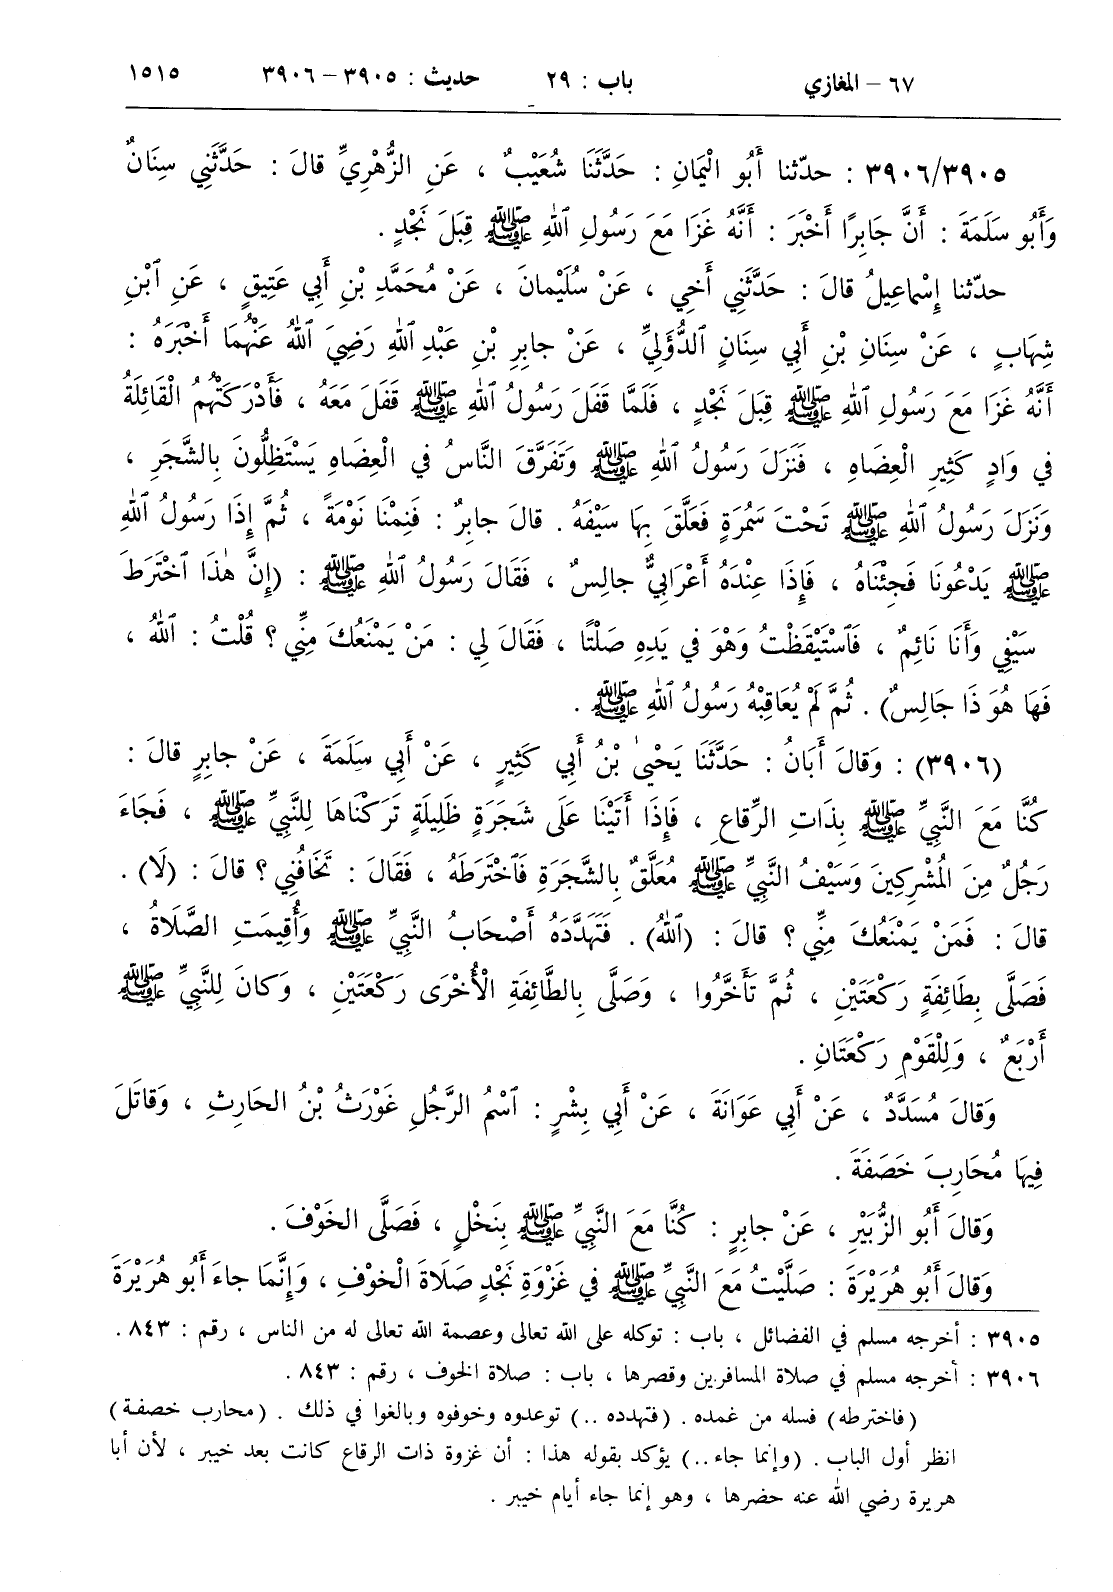 ٦٧ – المغازي باب : ٢٩ حديث : ٣٩٠٥ – ٣٩٠٦ ١٥١٥
٣٩٠٦/٣٩٠٥ : حدّثنا أَبُو الْيَمَانِ : حَدَّثَنَا شُعَيْبٌ ، عَنِ الزُّهْرِيِّ قالَ : حَدَّثَنِي سِنَانٌ
وَأَبُو سَلَمَةَ : أَنَّ جَابِرًا أَخْبَرَ : أَنَّهُ غَزَا مَعَ رَسُولِ ٱللهِ ﷺ قِبَلَ نَجْدٍ .
حدّثنا إِسْمَاعِيلُ قالَ : حَدَّثَنِي أَخِي ، عَنْ سُلَيْمانَ ، عَنْ مُحَمَّدِ بْنِ أَبِي عَتِيقٍ ، عَنِ ٱبْنِ
شِهَابٍ ، عَنْ سِنَانِ بْنِ أَبِي سِنَانٍ ٱلدُّؤَلِيِّ ، عَنْ جابِرِ بْنِ عَبْدِ ٱللهِ رَضِيَ ٱللهُ عَنْهُمَا أَخْبَرَهُ :
أَنَّهُ غَزَا مَعَ رَسُولِ ٱللهِ ﷺ قِبَلَ نَجْدٍ ، فَلَمَّا قَفَلَ رَسُولُ ٱللهِ ﷺ قَفَلَ مَعَهُ ، فَأَدْرَكَتْهُمُ الْقَائِلَةُ
في وَادٍ كَثِيرِ الْعِضَاهِ ، فَنَزَلَ رَسُولُ ٱللهِ ﷺ وَتَفَرَّقَ النَّاسُ في الْعِضَاهِ يَسْتَظِلُّونَ بِالشَّجَرِ ،
وَنَزَلَ رَسُولُ ٱللهِ ﷺ تَحْتَ سَمُرَةٍ فَعَلَّقَ بِهَا سَيْفَهُ . قالَ جابِرٌ : فَنِمْنَا نَوْمَةً ، ثُمَّ إِذَا رَسُولُ ٱللهِ
ﷺ يَدْعُونَا فَجِئْنَاهُ ، فَإِذَا عِنْدَهُ أَعْرَابِيٌّ جالِسٌ ، فَقَالَ رَسُولُ ٱللهِ ﷺ : (إِنَّ هٰذَا ٱخْتَرَطَ
سَيْفِي وَأَنَا نَائِمٌ ، فَٱسْتَيْقَظْتُ وَهْوَ في يَدِهِ صَلْتًا ، فَقَالَ لِي : مَنْ يَمْنَعُكَ مِنِّي ؟ قُلْتُ : ٱللهُ ،
فَهَا هُوَ ذَا جَالِسٌ) . ثُمَّ لَمْ يُعَاقِبْهُ رَسُولُ ٱللهِ ﷺ .
(٣٩٠٦) : وَقالَ أَبَانُ : حَدَّثَنَا يَحْيىٰ بْنُ أَبِي كَثِيرٍ ، عَنْ أَبِي سَلَمَةَ ، عَنْ جابِرٍ قالَ :
كُنَّا مَعَ النَّبِيِّ ﷺ بِذَاتِ الرِّقاعِ ، فَإِذَا أَتَيْنَا عَلَى شَجَرَةٍ ظَلِيلَةٍ تَرَكْنَاهَا لِلنَّبِيِّ ﷺ ، فَجَاءَ
رَجُلٌ مِنَ الْمُشْرِكِينَ وَسَيْفُ النَّبِيِّ ﷺ مُعَلَّقٌ بِالشَّجَرَةِ فَٱخْتَرَطَهُ ، فَقَالَ : تَخَافُنِي ؟ قالَ : (لَا) .
قالَ : فَمَنْ يَمْنَعُكَ مِنِّي ؟ قالَ : (ٱللهُ) . فَتَهَدَّدَهُ أَصْحَابُ النَّبِيِّ ﷺ وَأُقِيمَتِ الصَّلَاةُ ،
فَصَلَّى بِطَائِفَةٍ رَكْعَتَيْنِ ، ثُمَّ تَأَخَّرُوا ، وَصَلَّى بِالطَّائِفَةِ الْأُخْرَى رَكْعَتَيْنِ ، وَكانَ لِلنَّبِيِّ ﷺ
أَرْبَعٌ ، وَلِلْقَوْمِ رَكْعَتَانِ .
وَقالَ مُسَدَّدٌ ، عَنْ أَبِي عَوَانَةَ ، عَنْ أَبِي بِشْرٍ : ٱسْمُ الرَّجُلِ غَوْرَثُ بْنُ الحَارِثِ ، وَقاتَلَ
فِيهَا مُحَارِبَ خَصَفَةَ .
وَقالَ أَبُو الزُّبَيْرِ ، عَنْ جابِرٍ : كُنَّا مَعَ النَّبِيِّ ﷺ بِنَخْلٍ ، فَصَلَّى الخَوْفَ .
وَقالَ أَبُو هُرَيْرَةَ : صَلَّيْتُ مَعَ النَّبِيِّ ﷺ في غَزْوَةِ نَجْدٍ صَلَاةَ الْخَوْفِ ، وَإِنَّمَا جاءَ أَبُو هُرَيْرَةَ
٣٩٠٥ : أخرجه مسلم في الفضائل ، باب : توكله على الله تعالى وعصمة الله تعالى له من الناس ، رقم : ٨٤٣ .
٣٩٠٦ : أخرجه مسلم في صلاة المسافرين وقصرها ، باب : صلاة الخوف ، رقم : ٨٤٣ .
(فاخترطه) فسله من غمده . (فتهدده ..) توعدوه وخوفوه وبالغوا في ذلك . (محارب خصفة)
انظر أول الباب . (وإنما جاء ..) يؤكد بقوله هذا : أن غزوة ذات الرقاع كانت بعد خيبر ، لأن أبا
هريرة رضي الله عنه حضرها ، وهو إنما جاء أيام خيبر .